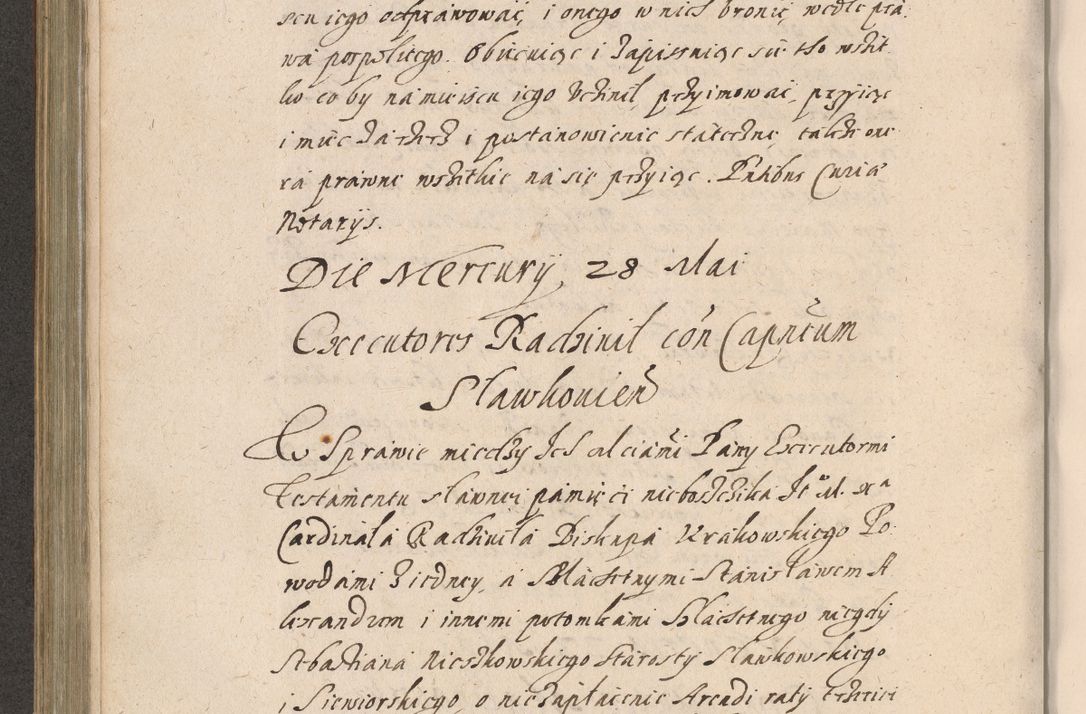 scu iego odprawować, i onego w nich bronić, wedle pra
wa pospolitego. Obiecuiąc i zapissuiąc się tho wszit
ko co by na mieiscu iego Vczinił, przyimować, przyiąć
i mieć za rzecz i postanowienie stateczne, takze one
ra prawne wszitkie na się przyiąć. Pntibus Curiæ
Notarijs.
Die Mercurij, 28 Mai
Executores Radziuil con Capneum
Slawkouien
W Sprawie miedzy Ich Mciami Pany Executormi
testamentu sławnei pamięci nieboszczika Je° M. X a
Cardinała Radziuiła Biskupa Krakowskiego Po
wodami z iedney, a Slachetnymi Stanisławem A
lexandrem i innemi potomkami Slachetnego niegdy
Sebastiana Nieszkowskiego Starosty Slawkowskiego
i Siewiorskiego, o niezapłacenie Arendi raty trzeciei